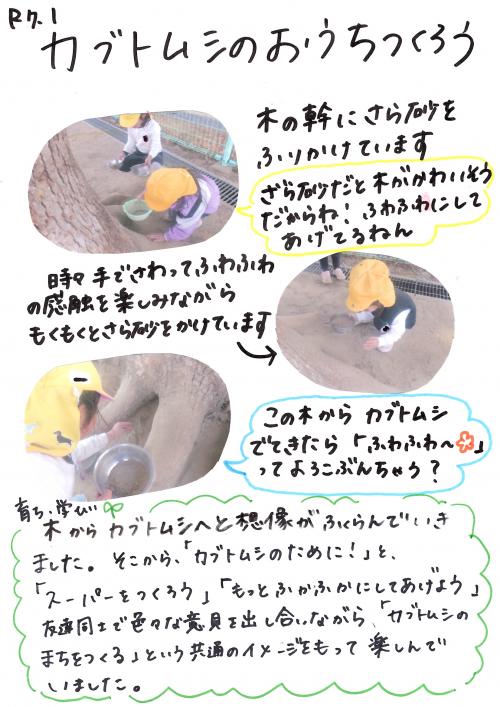 R7.1
カブトムシのおうちつくろう
木の幹にさら砂を
ふりかけています
ざら砂だと木がかわいそう
だからね！ふわふわにして
あげてるねん
時々手でさわってふわふわ
の感触を楽しみながら
もくもくとさら砂をかけています
この木からカブトムシ
でてきたら「ふわふわ〜」
ってよろこぶんちゃう？
育ち、学び
木からカブトムシへと想像がふくらんでいき
ました。そこから、「カブトムシのために！」と、
「スーパーをつくろう」「もっとふかふかにしてあげよう」
友達同士で色々な意見を出し合いながら、「カブトムシの
まちをつくる」という共通のイメージをもって楽しんで
いました。